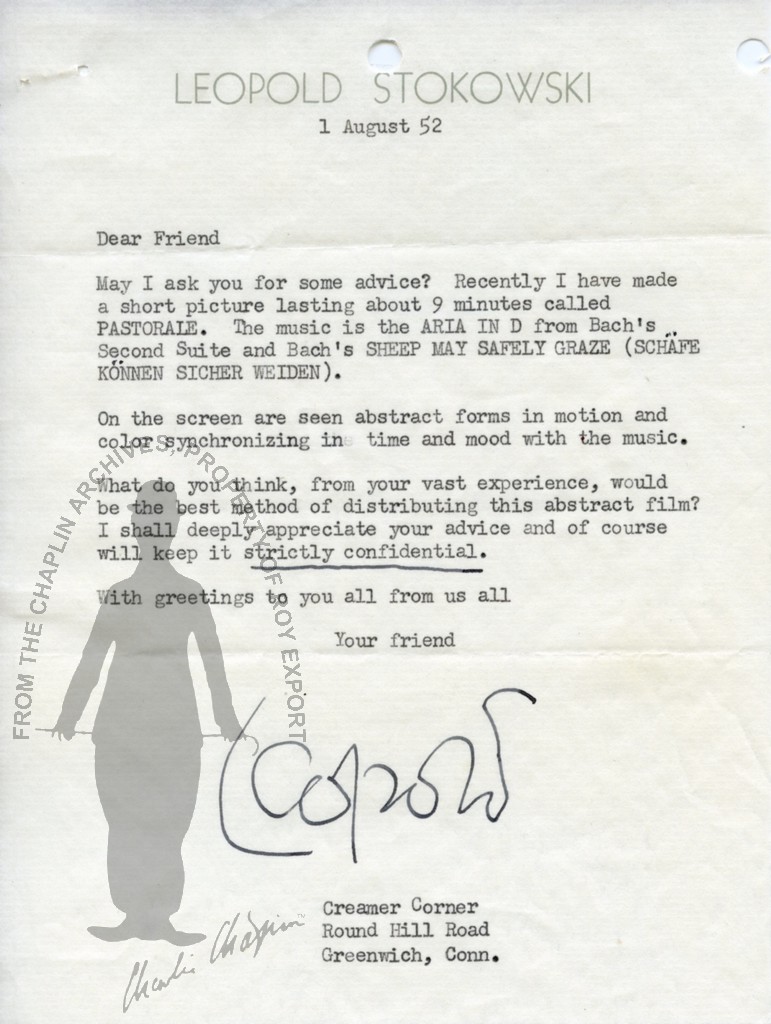 LEOPOLD STOKOWSKI
1 August 52
Dear Friend
May I ask you for some advice? Recently I have made
a short picture lasting about 9 minutes called
PASTORALE. The music is the ARIA IN D from Bach's
Second Suite and Bach's SHEEP MAY SAFELY GRAZE (SCHÄFE
KÖNNEN SICHER WEIDEN).
On the screen are seen abstract forms in motion and
color synchronizing in time and mood with the music.
What do you think, from your vast experience, would
be the best method of distributing this abstract film?
I shall deeply appreciate your advice and of course
will keep it strictly confidential.
With greetings to you all from us all
Your friend
Leopold
Creamer Corner
Round Hill Road
Greenwich, Conn.
FROM THE CHAPLIN ARCHIVES, PROPERTY OF ROY EXPORT
Charlie Chaplin